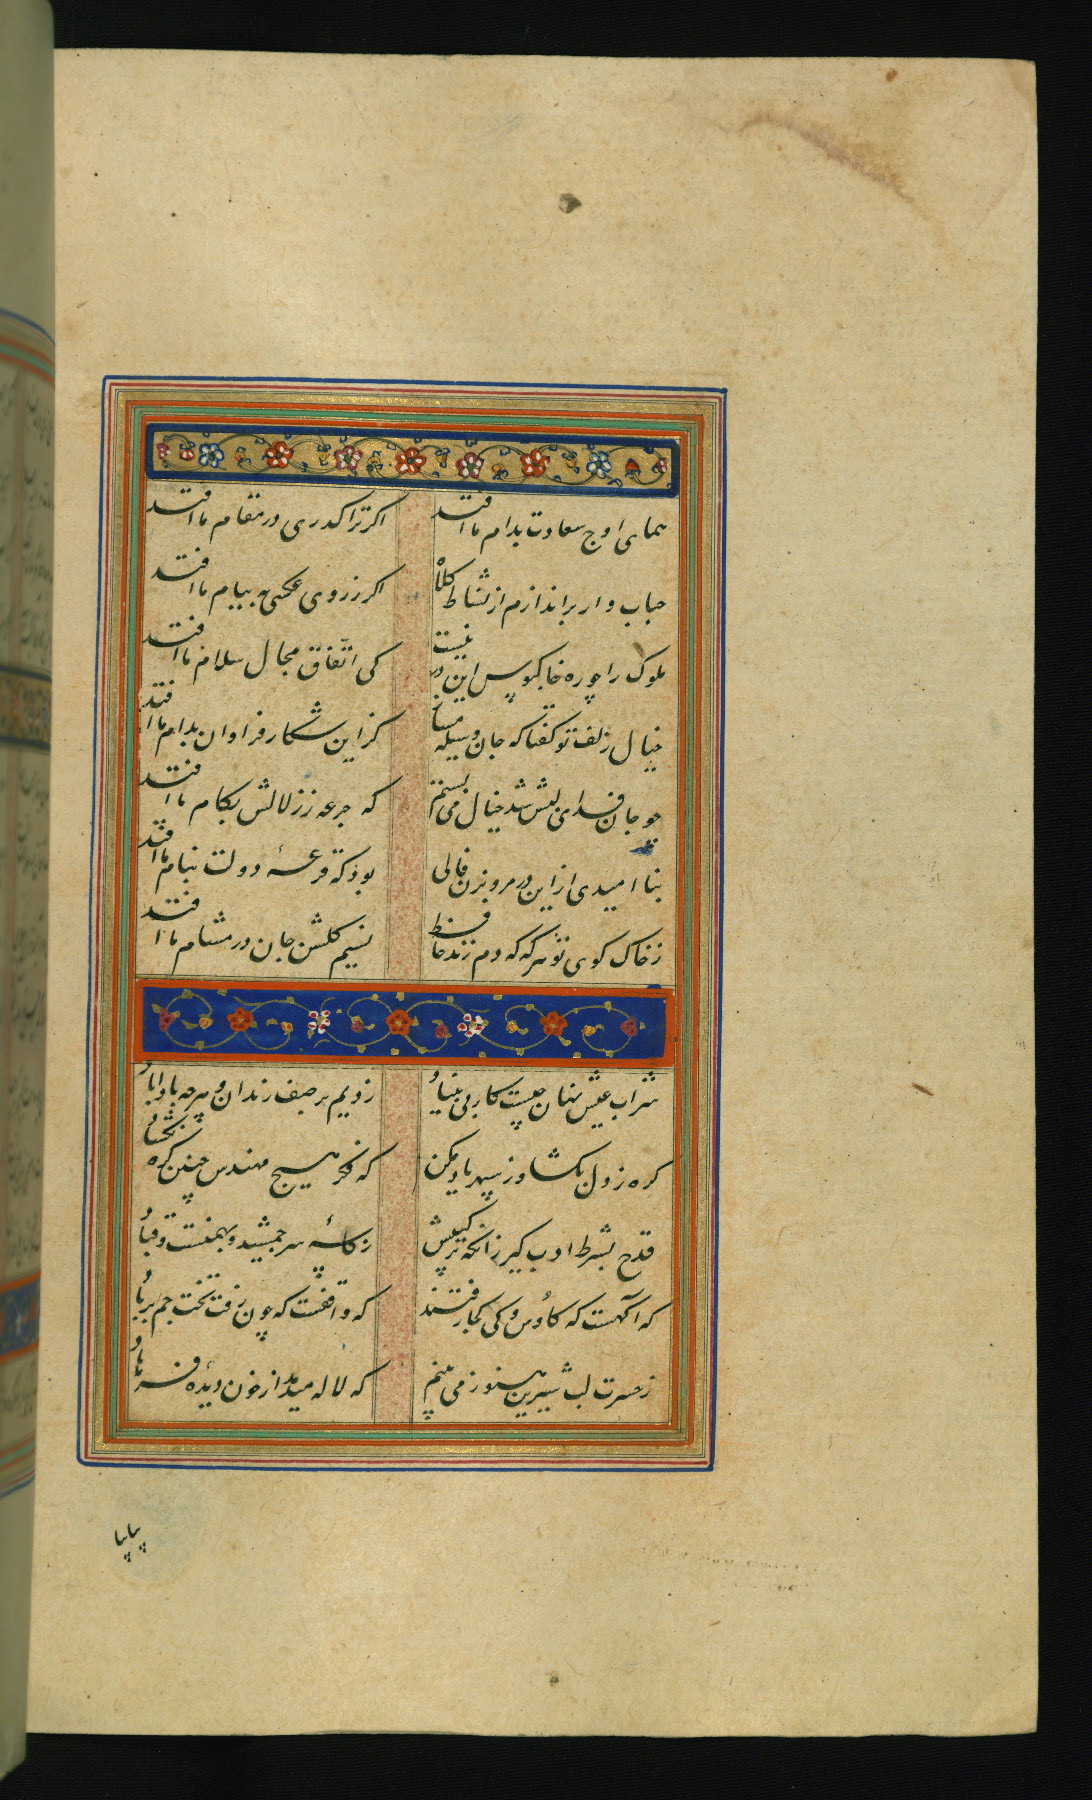 همای اوج سعادت بدام ما افتد اکر ترا کذری در مقام ما افتد
حباب وار براندازم از نشاط کلاه اکر ز روی عکسی بجام ما افتد
ملوک را چو ره خاکبوس این در نیست کی اتفاق مجال سلام ما افتد
خیال زلف تو کفتا که جان وسیله مساز کزاین شکار فراوان بدام ما افتد
چو جان فدای لبش شد خیال می بستم که جرعه ز زلالش بکام ما افتد
بنا امیدی ازاین در مرو بزن فالی بود که قرعهٔ دولت بنام ما افتد
ز خاک کوی تو هرکه که دم زند حافظ نسیم کلشن جان در مشام ما افتد
شراب عیش نهان چیست کار بی بنیاد زدیم بر صف رندان و هرچه باداباد
کره ز دل بکشا وز سپهر یاد مکن که فکر هیچ مهندس چنین کره نکشاد
قدح بشرط ادب کیر زانکه ترکیبش ز کاسهٔ سر جمشید و بهمنست و قباد
که آکهست که کاوس و کی کجا رفتند که واقفست که چون رفت تخت جم بر باد
ز حسرت لب شیرین هنوز می بینم که لاله میدمد از خون دیدهٔ فرهاد
بیا بیا